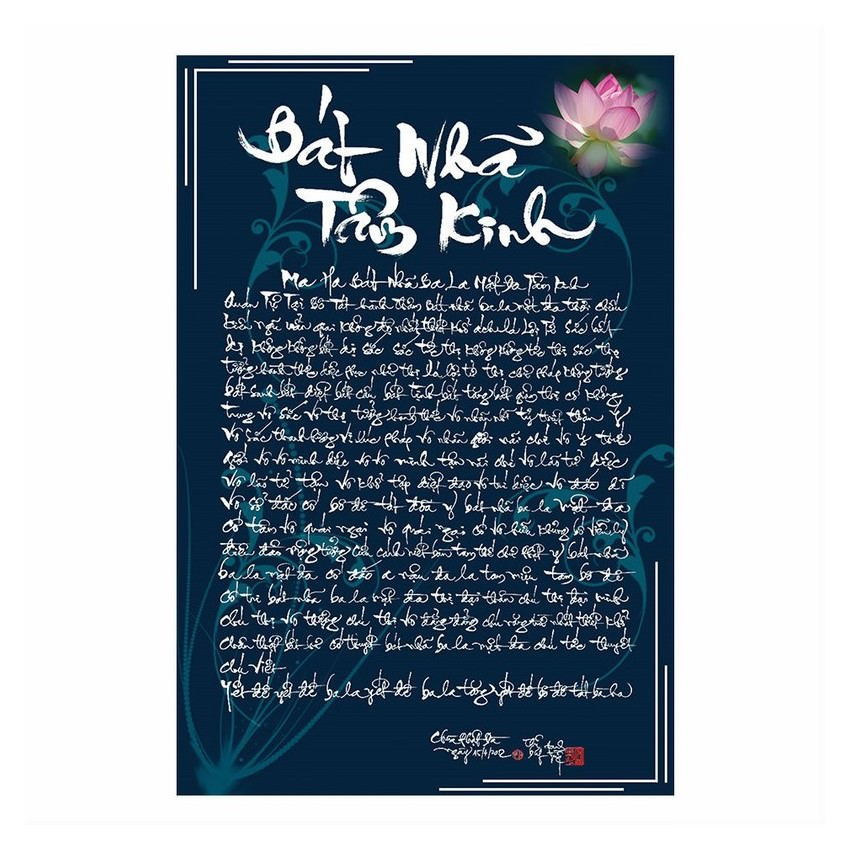 Bát Nhã
Tâm Kinh
Ma Ha Bát Nhã Ba La Mật Đa Tâm Kinh
Quán Tự Tại Bồ Tát hành thâm Bát nhã ba la mật đa thời chiếu
kiến ngũ uẩn giai không độ nhất thiết khổ ách Xá Lợi Tử Sắc bất
dị không không bất dị sắc sắc tức thị không không tức thị sắc thọ
tưởng hành thức diệc phục như thị Xá lợi tử thị chư pháp không tướng
bất sanh bất diệt bất cấu bất tịnh bất tăng bất giảm thị cố không
trung vô sắc vô thọ tưởng hành thức vô nhãn nhĩ tỷ thiệt thân ý
vô sắc thanh hương vị xúc pháp vô nhãn giới nãi chí vô ý thức
giới vô vô minh diệc vô vô minh tận nãi chí vô lão tử diệc
vô lão tử tận vô khổ tập diệt đạo vô trí diệc vô đắc dĩ
vô sở đắc cố bồ đề tát đỏa y bát nhã ba la mật đa
cố tâm vô quái ngại vô quái ngại cố vô hữu khủng bố viễn ly
điên đảo mộng tưởng cứu cánh niết bàn tam thế chư Phật y bát nhã
ba la mật đa cố đắc a nậu đa la tam miệu tam bồ đề
cố tri bát nhã ba la mật đa thị đại thần chú thị đại minh
chú thị vô thượng chú thị vô đẳng đẳng chú năng trừ nhất thiết khổ
chân thiệt bất hư cố thuyết bát nhã ba la mật đa chú tức thuyết
chú viết
Yết đế yết đế ba la yết đế ba la tăng yết đế bồ đề tát bà ha
ngày 15/4/2012